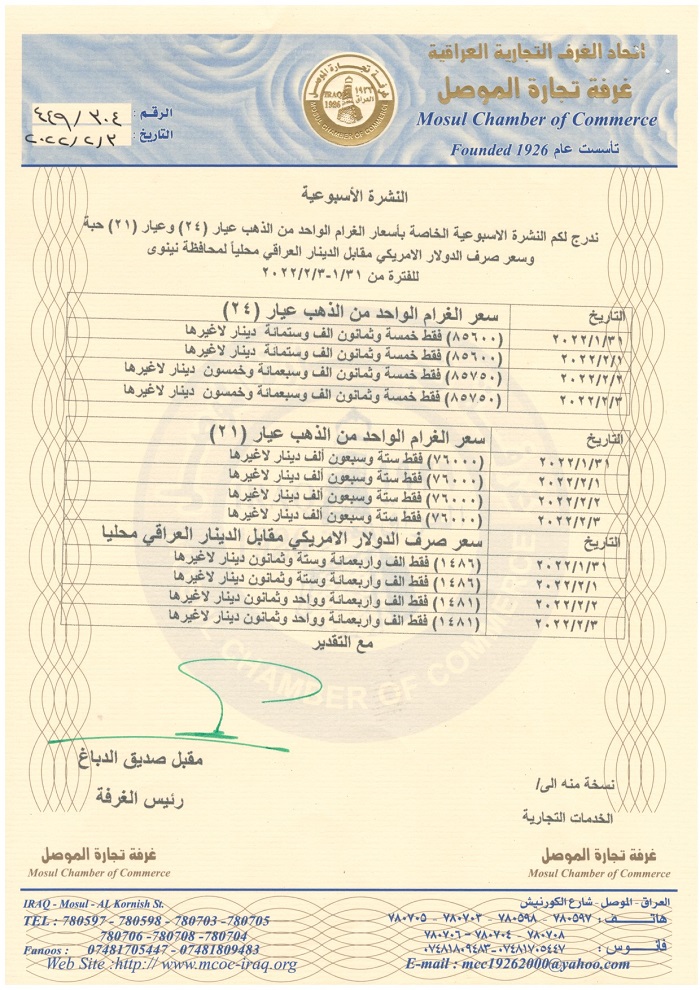 اتحاد الغرف التجارية العراقية
غرفة تجارة الموصل
Mosul Chamber of Commerce
تأسست عام Founded 1926
غرفة تجارة الموصل
IRAQ ١٩٢٦
1926 العراق
MOSUL CHAMBER OF COMMERCE
الرقم : ٤٤٩/٣٠٤
التاريخ : ٢٠٢٢/٢/٣
النشرة الأسبوعية
ندرج لكم النشرة الاسبوعية الخاصة بأسعار الغرام الواحد من الذهب عيار (٢٤) وعيار (٢١) حبة
وسعر صرف الدولار الامريكي مقابل الدينار العراقي محلياً لمحافظة نينوى
للفترة من ١/٣١-٢٠٢٢/٢/٣
التاريخ سعر الغرام الواحد من الذهب عيار (٢٤)
٢٠٢٢/١/٣١ (٨٥٦٠٠) فقط خمسة وثمانون الف وستمائة دينار لاغيرها
٢٠٢٢/٢/١ (٨٥٦٠٠) فقط خمسة وثمانون الف وستمائة دينار لاغيرها
٢٠٢٢/٢/٢ (٨٥٧٥٠) فقط خمسة وثمانون الف وسبعمائة وخمسون دينار لاغيرها
٢٠٢٢/٢/٣ (٨٥٧٥٠) فقط خمسة وثمانون الف وسبعمائة وخمسون دينار لاغيرها
التاريخ سعر الغرام الواحد من الذهب عيار (٢١)
٢٠٢٢/١/٣١ (٧٦٠٠٠) فقط ستة وسبعون ألف دينار لاغيرها
٢٠٢٢/٢/١ (٧٦٠٠٠) فقط ستة وسبعون ألف دينار لاغيرها
٢٠٢٢/٢/٢ (٧٦٠٠٠) فقط ستة وسبعون ألف دينار لاغيرها
٢٠٢٢/٢/٣ (٧٦٠٠٠) فقط ستة وسبعون ألف دينار لاغيرها
التاريخ سعر صرف الدولار الامريكي مقابل الدينار العراقي محليا
٢٠٢٢/١/٣١ (١٤٨٦) فقط الف واربعمائة وستة وثمانون دينار لاغيرها
٢٠٢٢/٢/١ (١٤٨٦) فقط الف واربعمائة وستة وثمانون دينار لاغيرها
٢٠٢٢/٢/٢ (١٤٨١) فقط الف واربعمائة وواحد وثمانون دينار لاغيرها
٢٠٢٢/٢/٣ (١٤٨١) فقط الف واربعمائة وواحد وثمانون دينار لاغيرها
مع التقدير
CHAMBER OF COMMERCE
مقبل صديق الدباغ
رئيس الغرفة
نسخة منه الى/
الخدمات التجارية
غرفة تجارة الموصل
Mosul Chamber of Commerce
غرفة تجارة الموصل
Mosul Chamber of Commerce
العراق - الموصل - شارع الكورنيش
هاتف : ٧٨٠٥٩٧ - ٧٨٠٥٩٨ - ٧٨٠٧٠٣ - ٧٨٠٧٠٥
٧٨٠٧٠٨ - ٧٨٠٧٠٤ - ٧٨٠٧٠٦
فانوس : ٠٧٤٨١٧٠٥٤٤٧-٠٧٤٨١٨٠٩٤٨٣
E-mail : mcc19262000@yahoo.com
IRAQ - Mosul - AL Kornish St.
TEL : 780597 - 780598 - 780703 -780705
780706 -780708 -780704
Fanoos : 07481705447 - 07481809483
Web Site :http:// www.mcoc-iraq.org